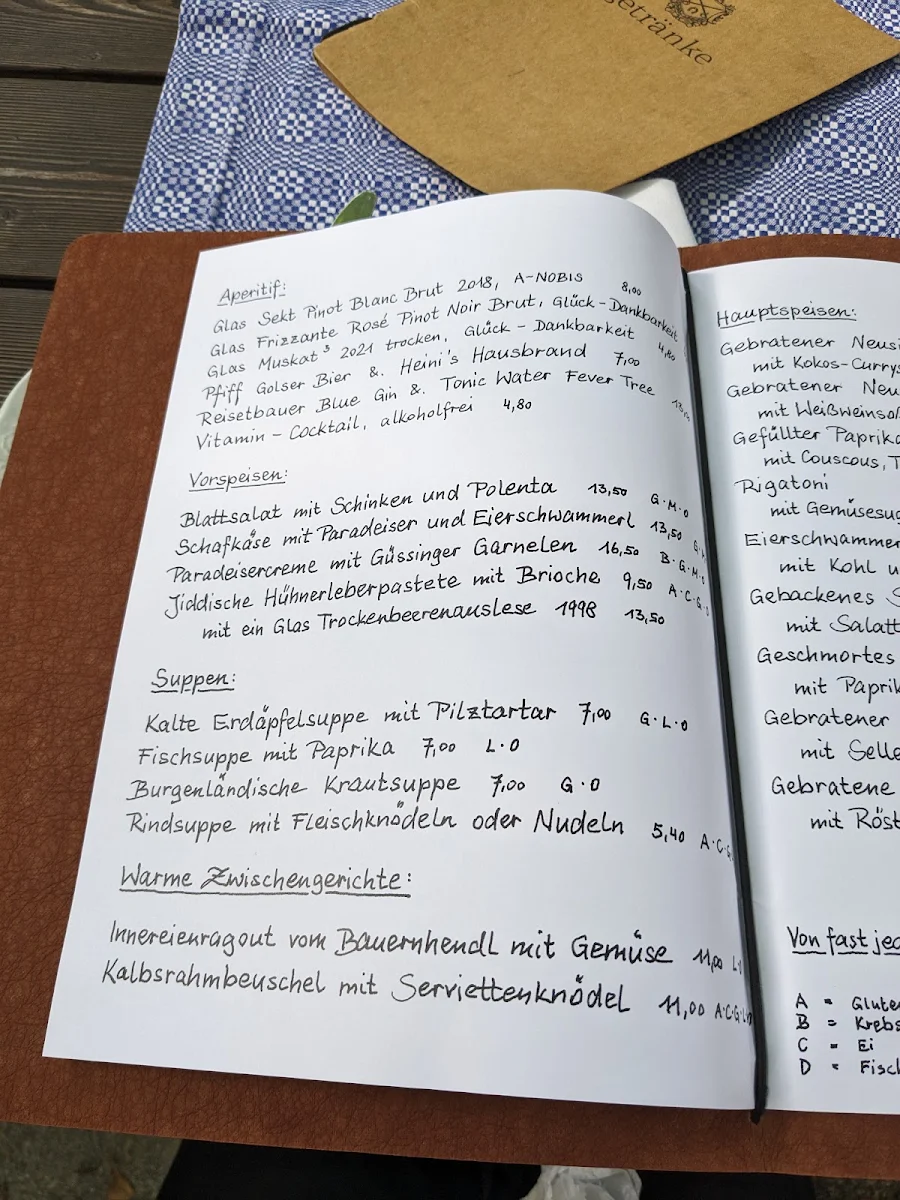 Getränke
Aperitif:
Glas Sekt Pinot Blanc Brut 2018, A-NOBIS 8,00
Glas Frizzante Rosé Pinot Noir Brut, Glück-Dankbarkeit
Glas Muskat³ 2021 trocken, Glück-Dankbarkeit 4,80
Pfiff Golser Bier &. Heini's Hausbrand 7,00
Reisetbauer Blue Gin &. Tonic Water Fever Tree
Vitamin-Cocktail, alkoholfrei 4,80
Vorspeisen:
Blattsalat mit Schinken und Polenta 13,50 G·M·O
Schafkäse mit Paradeiser und Eierschwammerl 13,50 G
Paradeisercreme mit Güssinger Garnelen 16,50 B·G·M·
Jiddische Hühnerleberpastete mit Brioche 9,50 A·C·G·
mit ein Glas Trockenbeerenauslese 1998 13,50
Suppen:
Kalte Erdäpfelsuppe mit Pilztartar 7,00 G·L·O
Fischsuppe mit Paprika 7,00 L·O
Burgenländische Krautsuppe 7,00 G·O
Rindsuppe mit Fleischknödeln oder Nudeln 5,40 A·C·G
Warme Zwischengerichte:
Innereienragout vom Bauernhendl mit Gemüse 11,00 L
Kalbsrahmbeuschel mit Serviettenknödel 11,00 A·C·G·L
Hauptspeisen:
Gebratener Neusi
mit Kokos-Currys
Gebratener Neu
mit Weißweinso
Gefüllter Paprika
mit Couscous, T
Rigatoni
mit Gemüsesug
Eierschwammer
mit Kohl u
Gebackenes S
mit Salat
Geschmortes
mit Paprik
Gebratener
mit Selle
Gebratene
mit Röst
Von fast jed
A = Glute
B = Krebs
C = Ei
D = Fisch